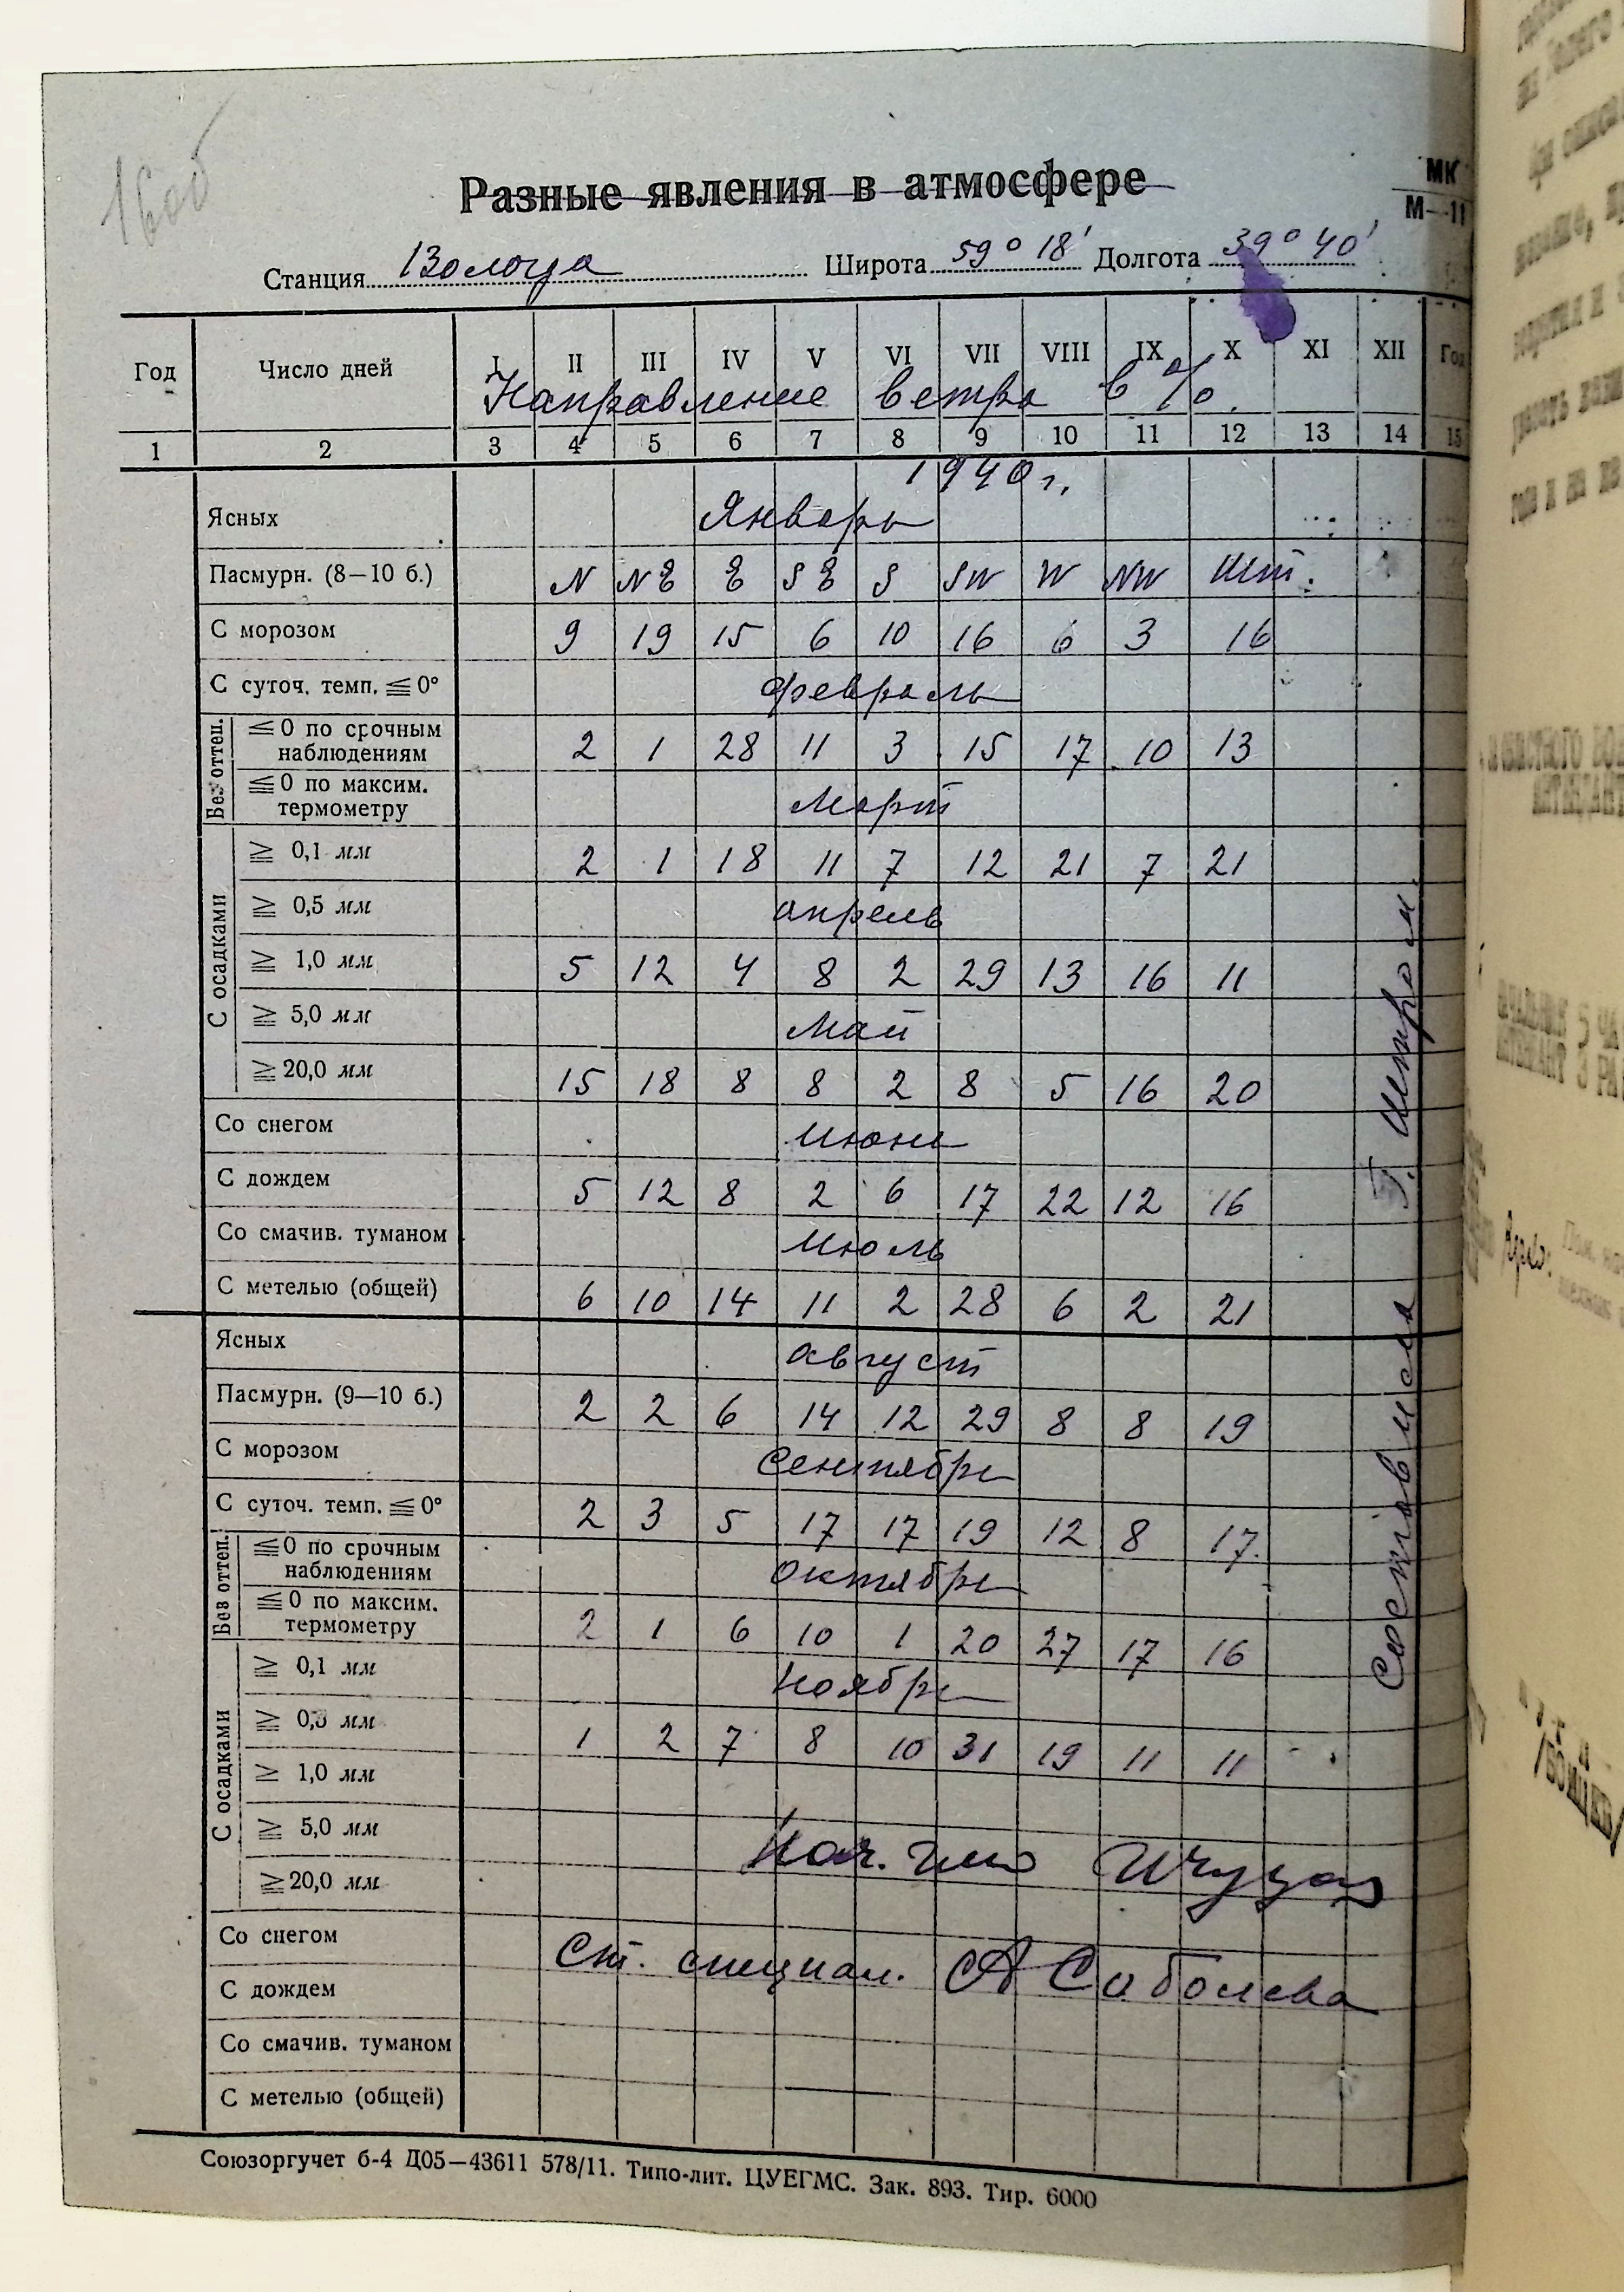 160об
Разные явления в атмосфере
МК
М—11
Станция Вологда Широта 59° 18' Долгота 39° 40'
Год Число дней I II III IV V VI VII VIII IX X XI XII Год
Направление ветра в %.
1 2 3 4 5 6 7 8 9 10 11 12 13 14 15
1940 г.
Ясных Январь
Пасмурн. (8—10 б.) N NE E SE S SW W NW Шт.
С морозом 9 19 15 6 10 16 6 3 16
С суточ. темп. ≦ 0° Февраль
Без оттеп.
≤ 0 по срочным
наблюдениям 2 1 28 11 3 15 17 10 13
≦ 0 по максим.
термометру Март
С осадками
≧ 0,1 мм 2 1 18 11 7 12 21 7 21
≧ 0,5 мм апрель
≧ 1,0 мм 5 12 4 8 2 29 13 16 11
≧ 5,0 мм Май
≧ 20,0 мм 15 18 8 8 2 8 5 16 20
Со снегом Июнь
С дождем 5 12 8 2 6 17 22 12 16
Со смачив. туманом Июль
С метелью (общей) 6 10 14 11 2 28 6 2 21
Ясных август
Пасмурн. (9—10 б.) 2 2 6 14 12 29 8 8 19
С морозом Сентябрь
С суточ. темп. ≦ 0° 2 3 5 17 17 19 12 8 17.
Без оттеп.
≦ 0 по срочным
наблюдениям Октябрь
≦ 0 по максим.
термометру 2 1 6 10 1 20 27 17 16
С осадками
≧ 0,1 мм Ноябрь
≧ 0,5 мм 1 2 7 8 10 31 19 11 11
≥ 1,0 мм
≧ 5,0 мм Нач.
≧ 20,0 мм
Со снегом Ст. специал. А Соболева
С дождем
Со смачив. туманом
С метелью (общей)
Союзоргучет б-4 Д05—43611 578/11. Типо-лит. ЦУЕГМС. Зак. 893. Тир. 6000